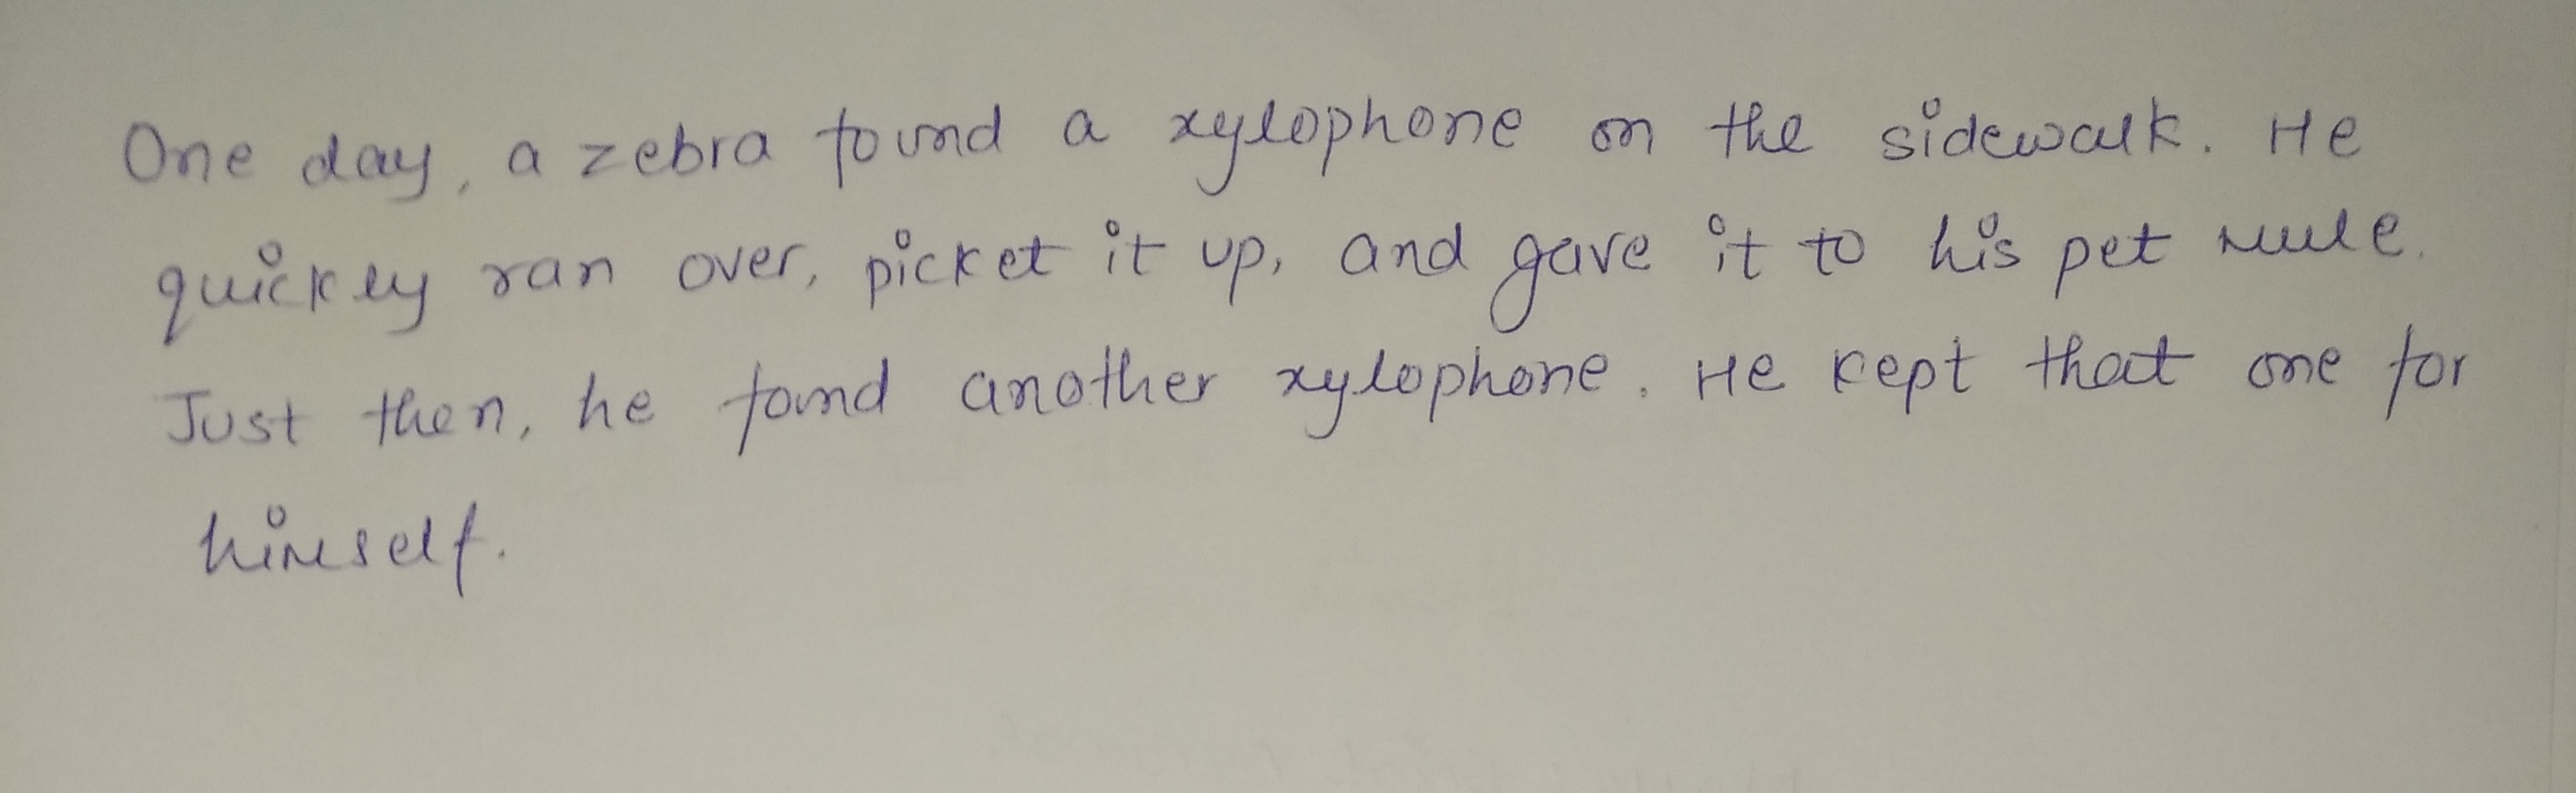 One day, a zebra found a xylophone on the sidewalk. He
quickly ran over, picket it up, and gave it to his pet mule.
Just then, he found another xylophone. He kept that one for
himself.